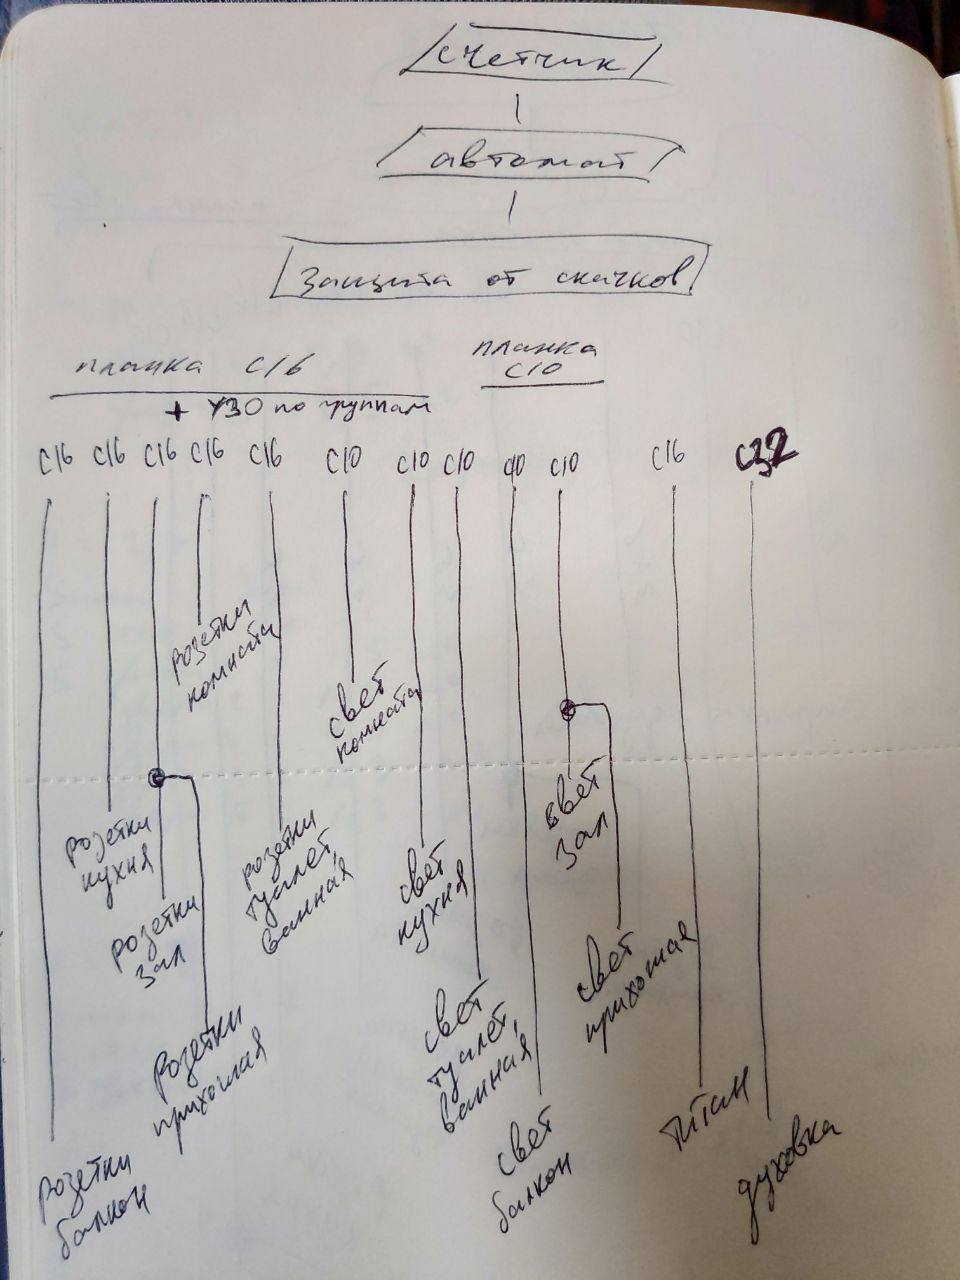 счетчик
автомат
защита от скачков
планка С16
+ УЗО по группам
планка
С10
С16 С16 С16 С16 С16 С10 С10 С10 С10 С10 С16 С32
розетки
комната
свет
комната
розетки
кухня
розетки
зал
розетки
туалет,
ванная
свет
кухня
свет
зал
розетки
прихожая
свет
туалет,
ванная
свет
прихожая
розетки
балкон
свет
балкон
титан
духовка